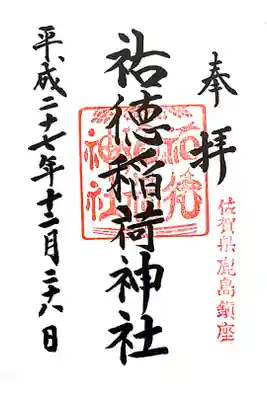 奉拝
佐賀県鹿島鎮座
祐徳稲荷神社
祐徳
神社
平成二十七年十二月二十八日